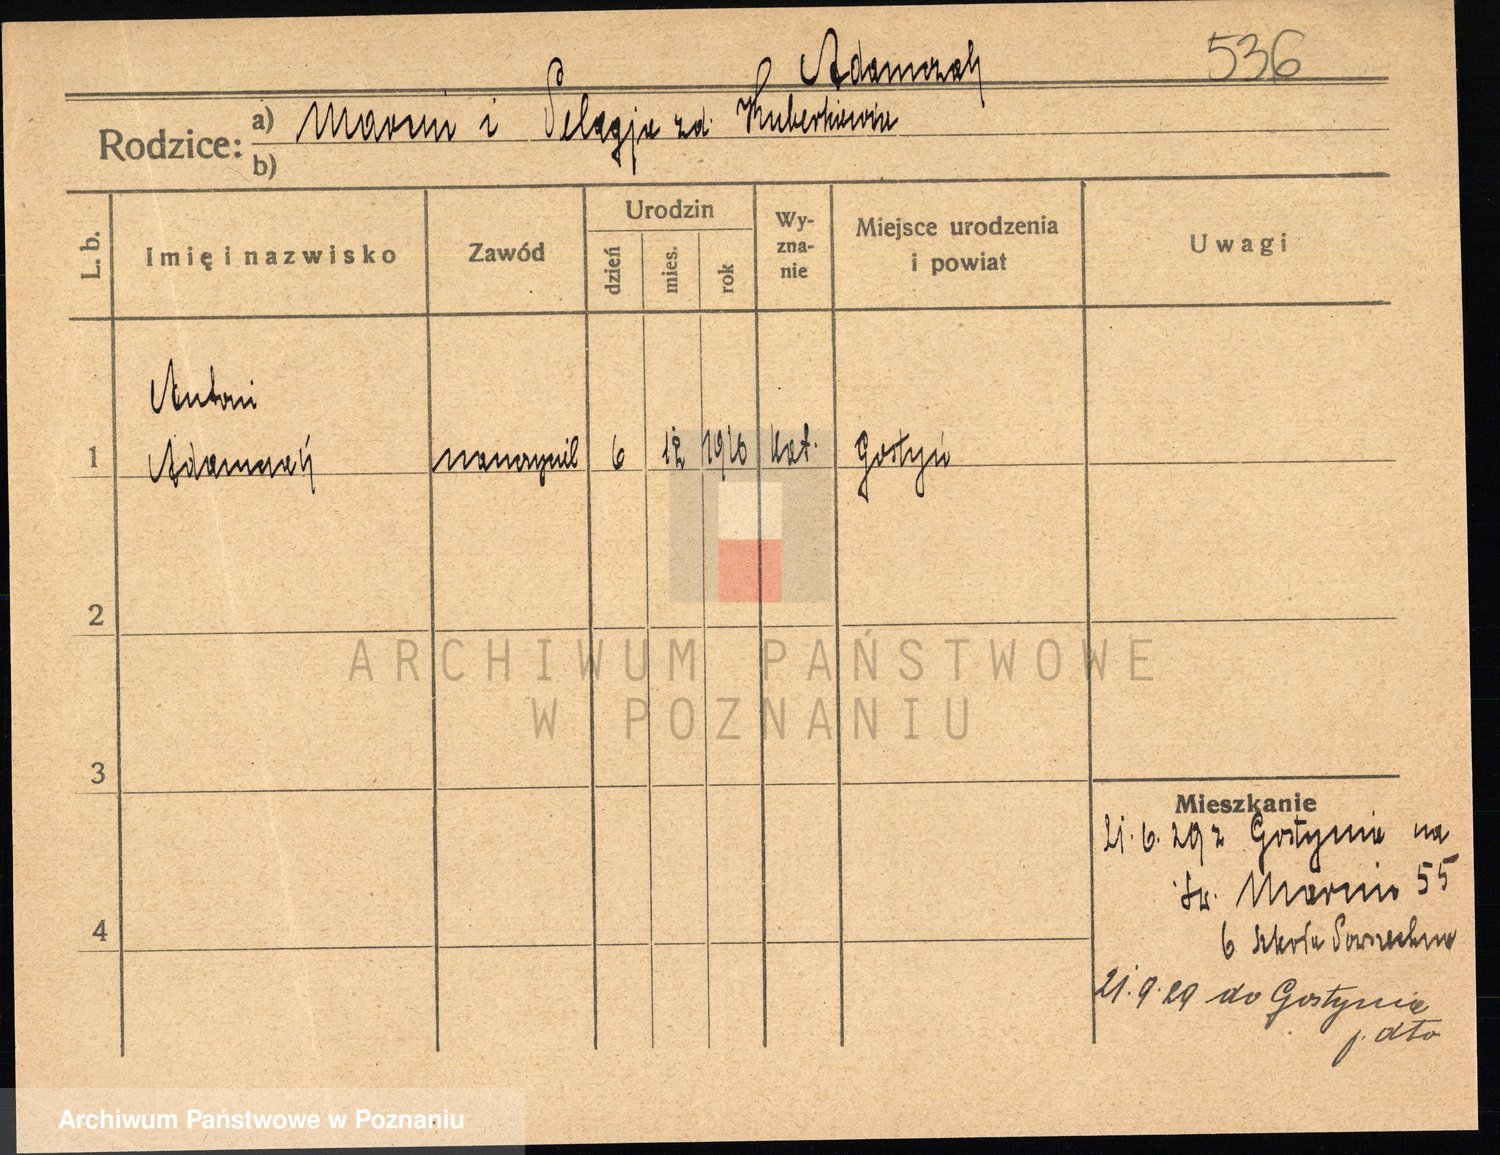 536
Adamczak
Rodzice:
a) Marcin i Pelagja zd. Hubertiewin
b)
L. b.
Imię i nazwisko
Zawód
Urodzin
dzień
mies.
rok
Wy-
zna-
nie
Miejsce urodzenia
i powiat
Uwagi
Antoni
1 Adamczak 6 12 1916 kat. Gostyń
2
ARCHIWUM PAŃSTWOWE
W POZNANIU
3
4
Mieszkanie
21. 6. 29 z Gostynia na
św. Marcin 55
6 szkoła Powszechna
21. 9. 29 do Gostynia
Archiwum Państwowe w Poznaniu